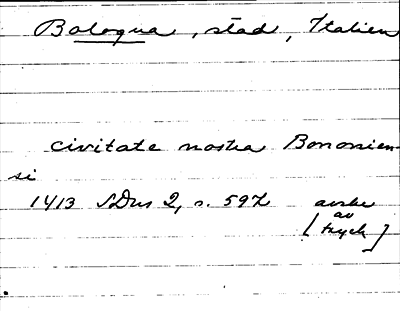 Bologna, stad, Italien
civitate nostra Bononien-
si
1413 SDns 2, s. 597 avskr
av
[tryck]